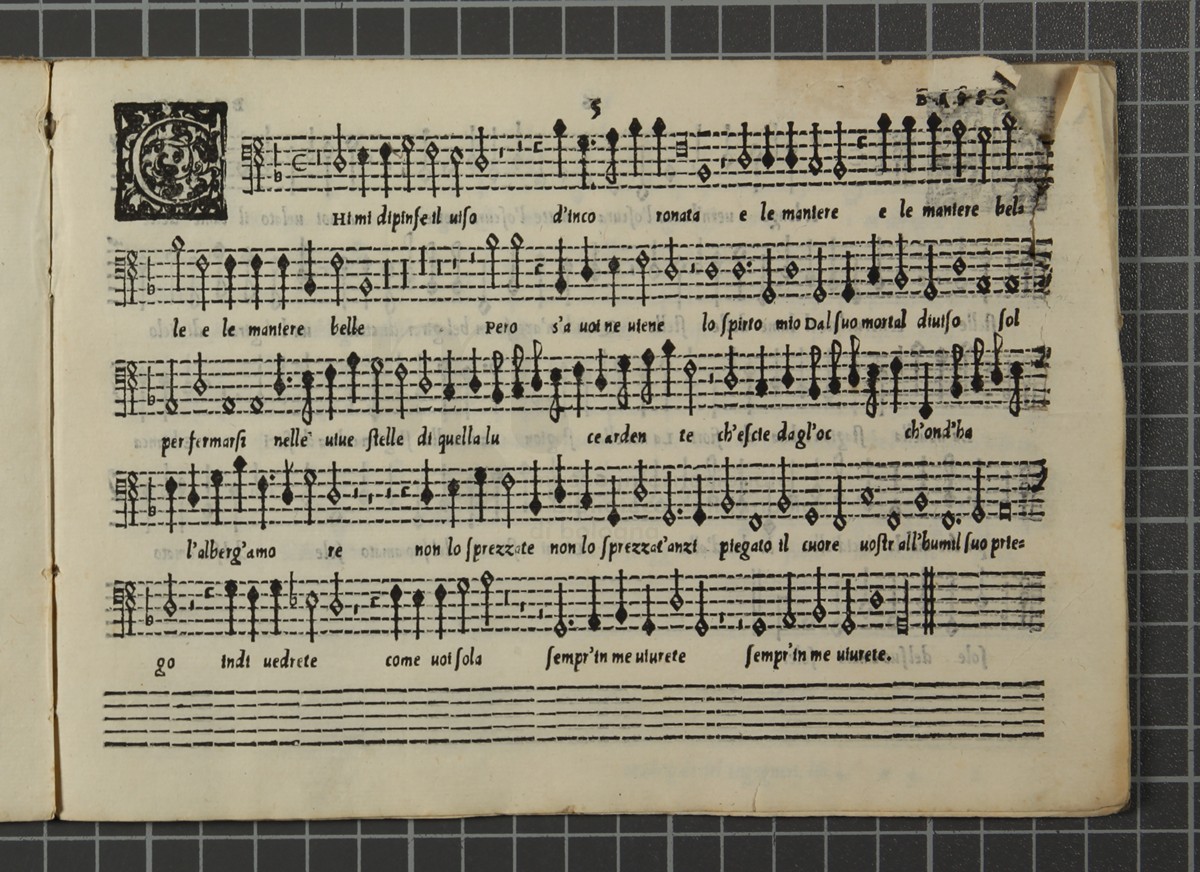 5
BASSO
CHi mi dipinse il uiso d'inco ronata e le maniere e le maniere bel=
le e le maniere belle Pero s'a uoi ne uiene lo spirto mio Dal suo mortal diuiso sol
per fermarsi nelle uiue stelle di quella lu ce arden te ch'escie da gl'oc ch'ond'ha
l'alberg'amo re non lo sprezzate non lo sprezzat'anzi piegato il cuore uostr all'humil suo prie=
go indi uedrete come uoi sola sempr'in me uiurete sempr'in me uiurete.